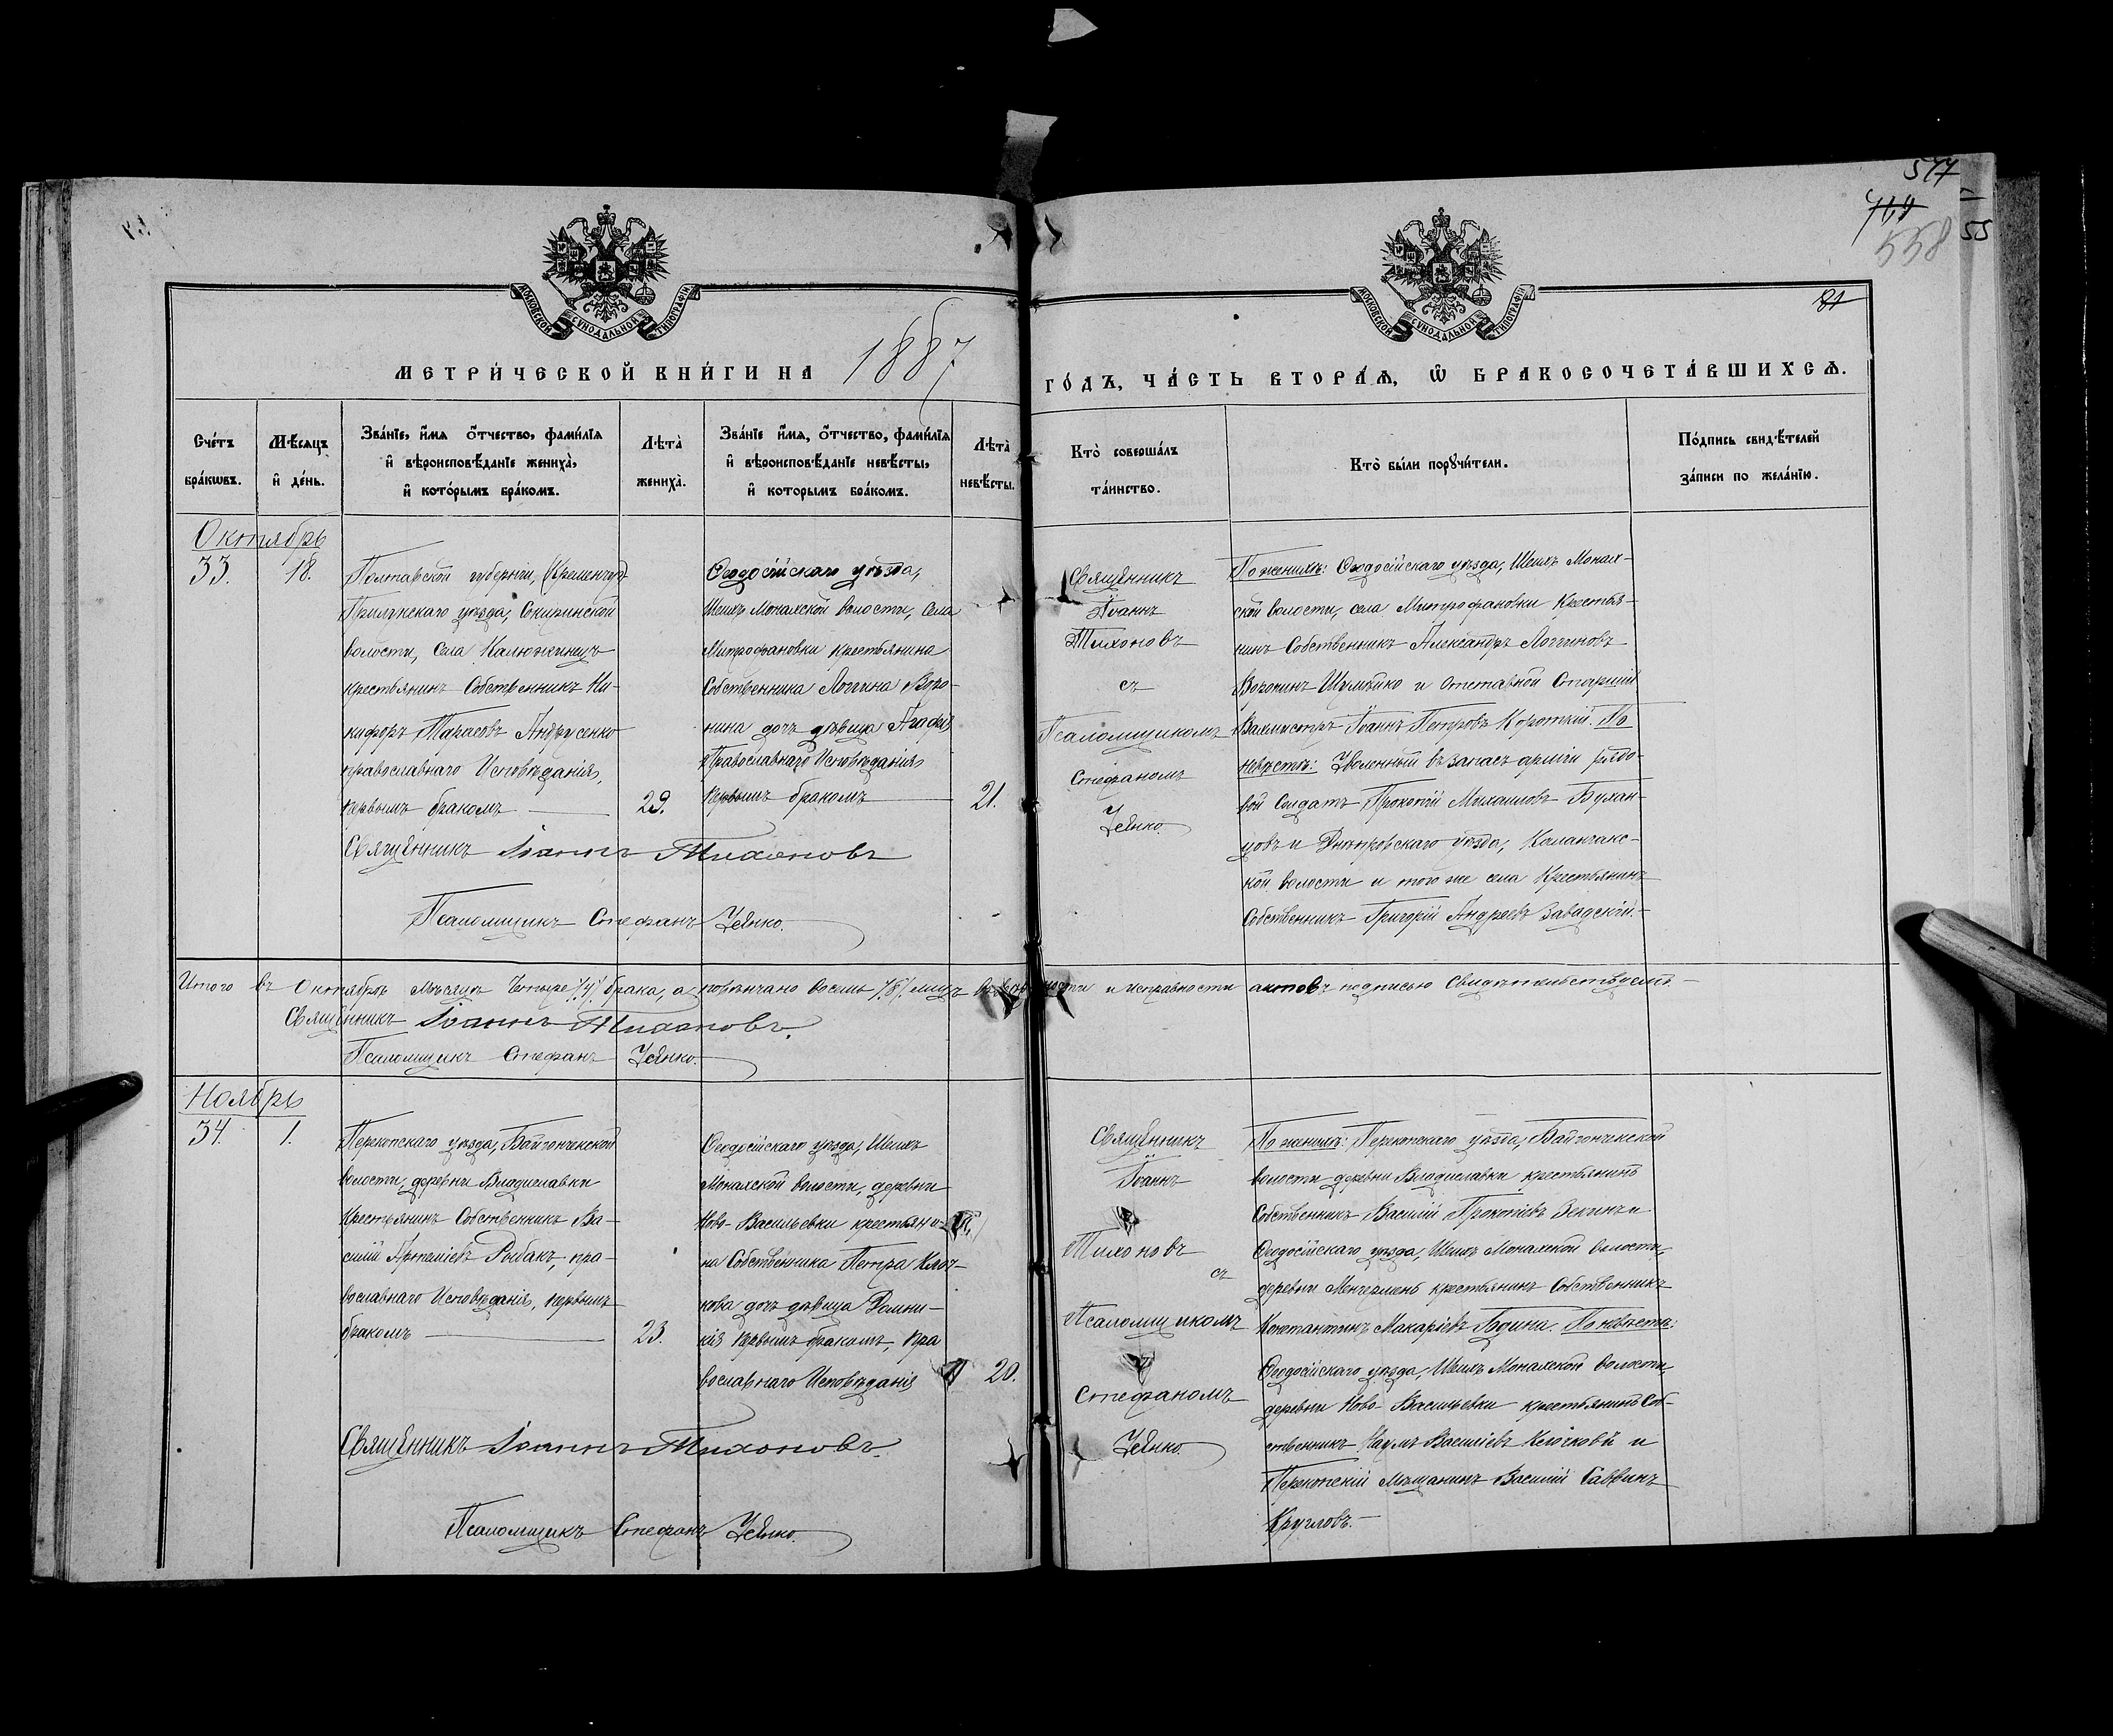 517
711
558
55
81
МОСКОВСКОЙ СѴНОДАЛЬНОЙ ТИПОГРАФІИ
МОСКОВСКОЙ СѴНОДАЛЬНОЙ ТИПОГРАФІИ
МЕТРИ́ЧЕСКОЙ КНИ́ГИ НА 1887
ГО́ДЪ, ЧА́СТЬ ВТОРА́Ѧ, Ѽ БРАКОСОЧЕТА́ВШИХСѦ.
Сче́тъ бра́кѡвъ.
Мѣ́сяцъ и҆ де́нь.
Зва́нїе, и҆́мя ѻ҆́тчество, фами́лїя и҆ вѣроисповѣ́данїе жениха̀, и҆ кото́рымъ бра́комъ.
Лѣта̀ жениха̀.
Зва́нїе и҆́мя, ѻ҆́тчество, фами́лїя и҆ вѣроисповѣ́данїе невѣ́сты, и҆ которымъ бра́комъ.
Лѣта̀ невѣ́сты.
Кто̀ соверша́лъ та́инство.
Кто̀ бы́ли порꙋчи́тели.
По́дпись свидѣ́телей за́писи по жела́нїю.
Октябрь
33.
18.
Полтавской губерніи, (Кременчуг
Прилукскаго уѣзда, Сокиринской
волости, села Калюжинецъ
крестьянинъ Собственникъ Ни-
кифоръ Тарасовъ Андрусенко
православнаго Исповѣданія,
первымъ бракомъ
29.
Ѳеодосійскаго уѣзда,
Шеихъ Монахской волости, села
Митрофановки крестьянина
Собственника Логгина Воро-
нина дочь дѣвица Агафія
Православнаго Исповѣданія
первымъ бракомъ
21.
Священникъ
Іоаннъ
Тихоновъ
съ
Псаломщикомъ
Стефаномъ
По женихѣ: Ѳеодосійскаго уѣзда, Шеихъ Монах-
ской волости, села Митрофановки Крестья-
нинъ Собственникъ Александръ Логгиновъ
Воронинъ и Отставной Старшій
Вахмистръ Іоаннъ Петровъ Короткій. По
невѣстѣ: Уволенный въ запасъ арміи рядо-
вой Солдатъ Прокопій Михаиловъ Бухан-
цовъ и Днѣпровскаго уѣзда, Каланчакс-
кой волости и того же села Крестьянинъ
Собственникъ Григорій Андреевъ Завадскій.
Священникъ Іоаннъ Тихоновъ
Псаломщикъ Стефанъ
Итого въ Октябрѣ Мѣсяцѣ Четыре /4/ брака, а повѣнчано восемь /8/ лицъ и исправности актовъ подписью Свидѣтельствуемъ
Священникъ Іоаннъ Тихоновъ.
Псаломщикъ Стефанъ
Ноябрь
34.
1.
Перекопскаго уѣзда, Байгончекской
волости, деревни Владиславки
Крестьянинъ Собственникъ Ва-
силій Артеміевъ Рыбакъ, пра-
вославнаго Исповѣданія, первымъ
бракомъ
23.
Ѳеодосійскаго уѣзда, Шеихъ
Монахской волости, деревни
Ново-Васильевки крестьяни-
на Собственника Петра Клоч-
кова дочь дѣвица Домни-
кія первымъ бракомъ, пра
вославнаго Исповѣданія
20.
Священникъ
Іоаннъ
Тихоновъ
съ
Псаломщикомъ
Стефаномъ
По женихѣ: Перекопскаго уѣзда, Байгончекской
волости деревни Владиславки крестьянинъ
Собственникъ Василій Прокопіевъ и
Ѳеодосійскаго уѣзда, Шеихъ Монахской волости,
деревни Менгермень крестьянинъ Собственникъ
Константинъ Макаріевъ Години. По невѣстѣ:
Ѳеодосійскаго уѣзда, Шеихъ Монахской волости,
деревни Ново-Васильевки крестьянинъ Соб-
ственникъ Наумъ Василіевъ Клочковъ и
Перекопскій Мѣщанинъ Василій Саввинъ
Кругловъ.
Священникъ Іоаннъ Тихоновъ.
Псаломщикъ Стефанъ